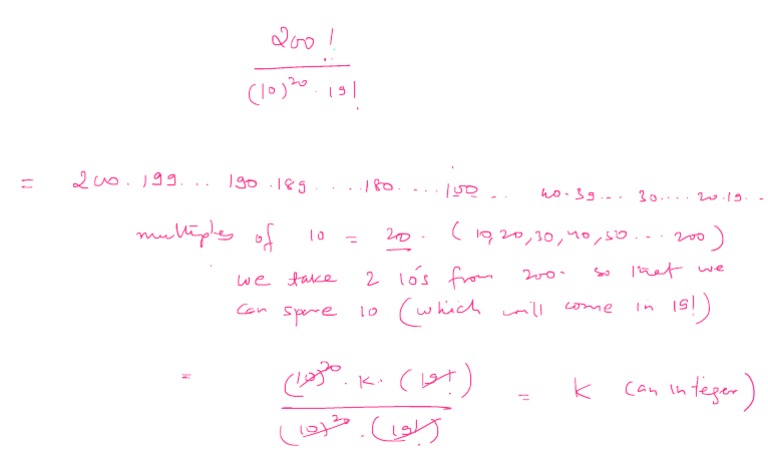 200!
(10)^20 · 19!
= 200. 199... 190. 189. ... 180. ... 100 .. 40. 39... 30.... 20. 19...
multiples of 10 = 20. (10, 20, 30, 40, 50 ... 200)
we take 2 10's from 200. so that we
can spare 10 (which will come in 19!)
= (10)^20 · K · (19!)
(10)^20 · (19!)
= K (an integer)